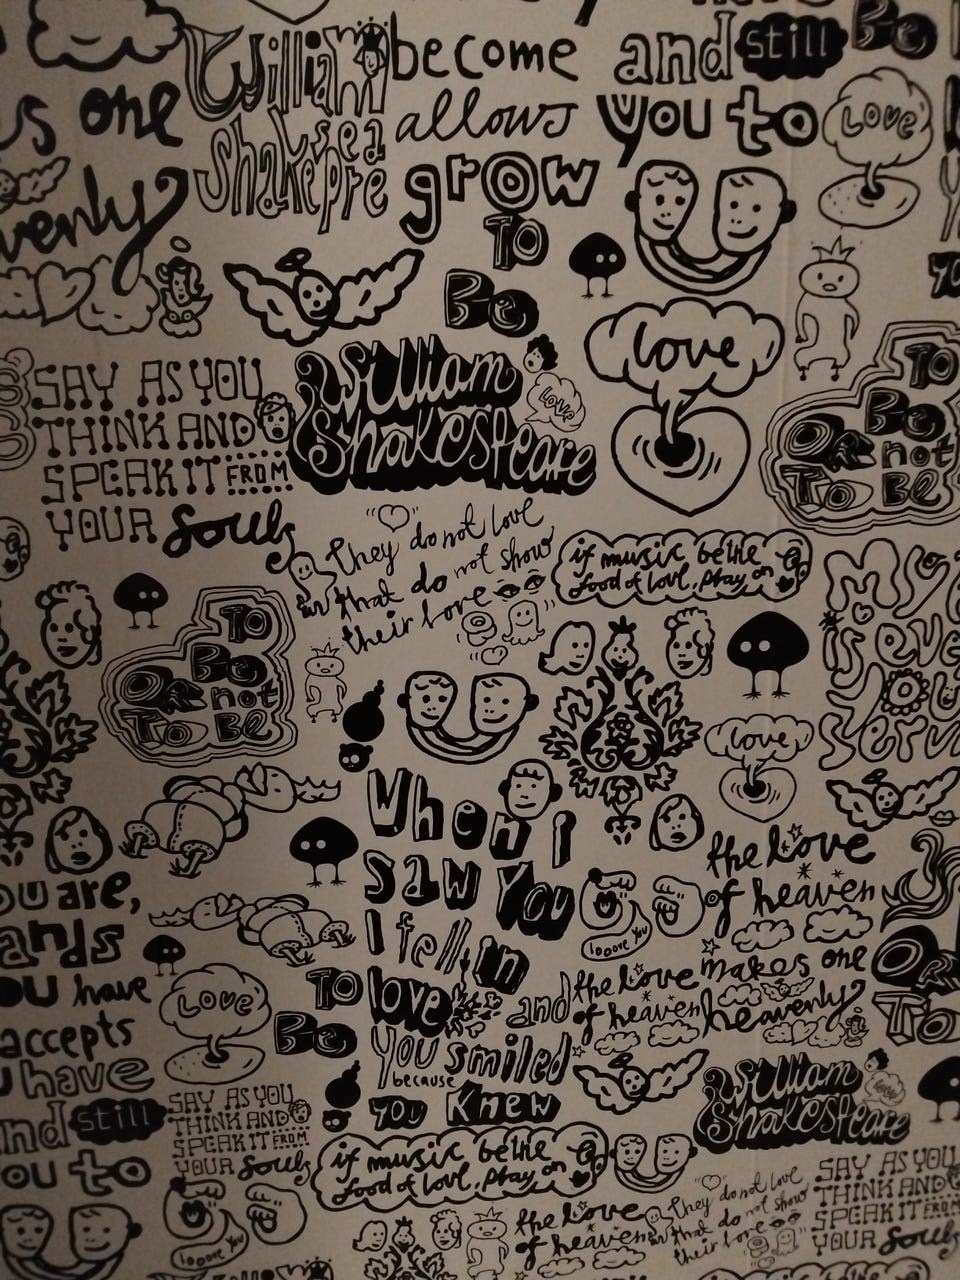 William
Shakespeare
become
allows
grow
and still
you to
Be
Love
s one
venly
To
Be
love
SAY AS YOU
THINK AND
SPEAK IT FROM
YOUR Souls
William
Shakespeare
Love
To
Be
OR not
To BE
they do not love
that do not show
their love
if music be the
food of love, play on
To
Be
OR not
To BE
love
When I
saw You
I fell in
love
and
You smiled
because
you Knew
the Love
of heaven
makes one
heavenly
looove You
ou are,
ands
ou have
accepts
have
nd still
ou to
Love
To
Be
the Love
of heaven
William
Shakespeare
SAY AS YOU
THINK AND
SPEAK IT FROM
YOUR Souls
if music be the
food of love, play on
looove You
the Love
of heaven
They do not love
that do not show
their love
SAY AS YOU
THINK AND
SPEAK IT FROM
YOUR Souls